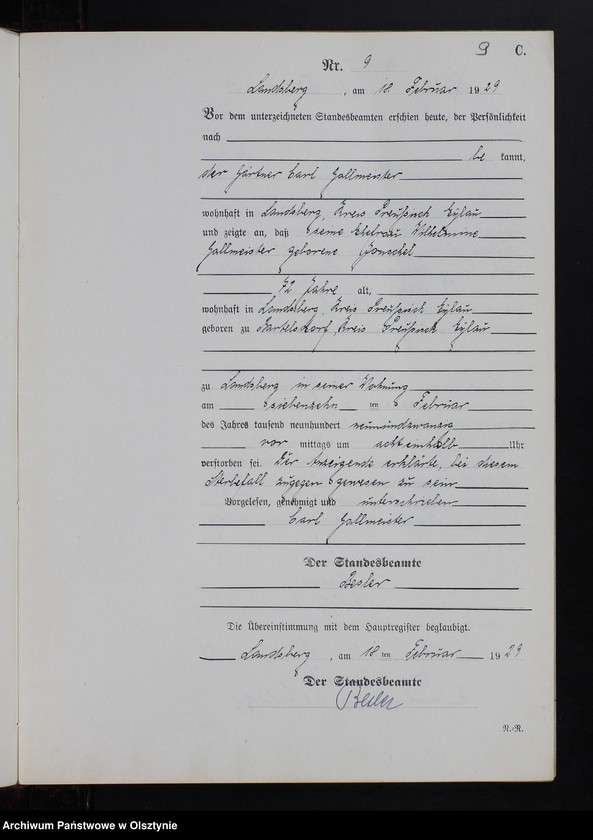 9 C.
Nr. 9
Landsberg, am 18. Februar 1929
Vor dem unterzeichneten Standesbeamten erschien heute, der Persönlichkeit
nach
be kannt,
der Gärtner Carl Gallmeister
wohnhaft in Landsberg, Kreis Preußisch Eylau
und zeigte an, daß seine Ehefrau Wilhelmine
Gallmeister geborene
72 Jahre alt,
wohnhaft in Landsberg, Kreis Preußisch Eylau
geboren zu Bartelsdorf, Kreis Preußisch Eylau
zu Landsberg in seiner Wohnung
am siebenzehn ten Februar
des Jahres tausend neunhundert neunundzwanzig
vor mittags um acht einhalb Uhr
verstorben sei. Der Anzeigende erklärte, bei diesem
Sterbefall zugegen gewesen zu sein
Vorgelesen, genehmigt und unterschrieben
Carl Gallmeister
Der Standesbeamte
Besler
Die Übereinstimmung mit dem Hauptregister beglaubigt.
Landsberg, am 18 ten Februar 1929
Der Standesbeamte
Besler
R.-R.
Archiwum Państwowe w Olsztynie